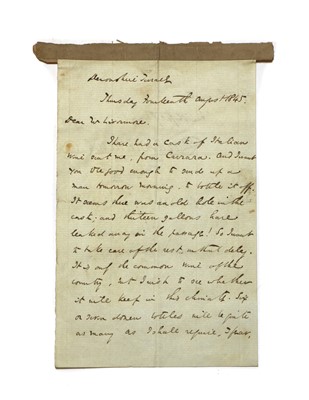 Devonshire Terrace
Thursday Fourteenth August 1845.
Dear Mr Livermore.
There had a cask of Italian
wine sent me, from Carrara. And I want
you to be good enough to send up a
man tomorrow morning, to bottle it off.
It seems there was an old hole in the
cask, and thirteen gallons have
leaked away in the passage! So I want
to take care of the rest, without delay.
It is only the common wine of the
country, but I wish to see whether
it will keep in this climate. Six
or seven dozen bottles will be quite
as many as I shall require, I fear.